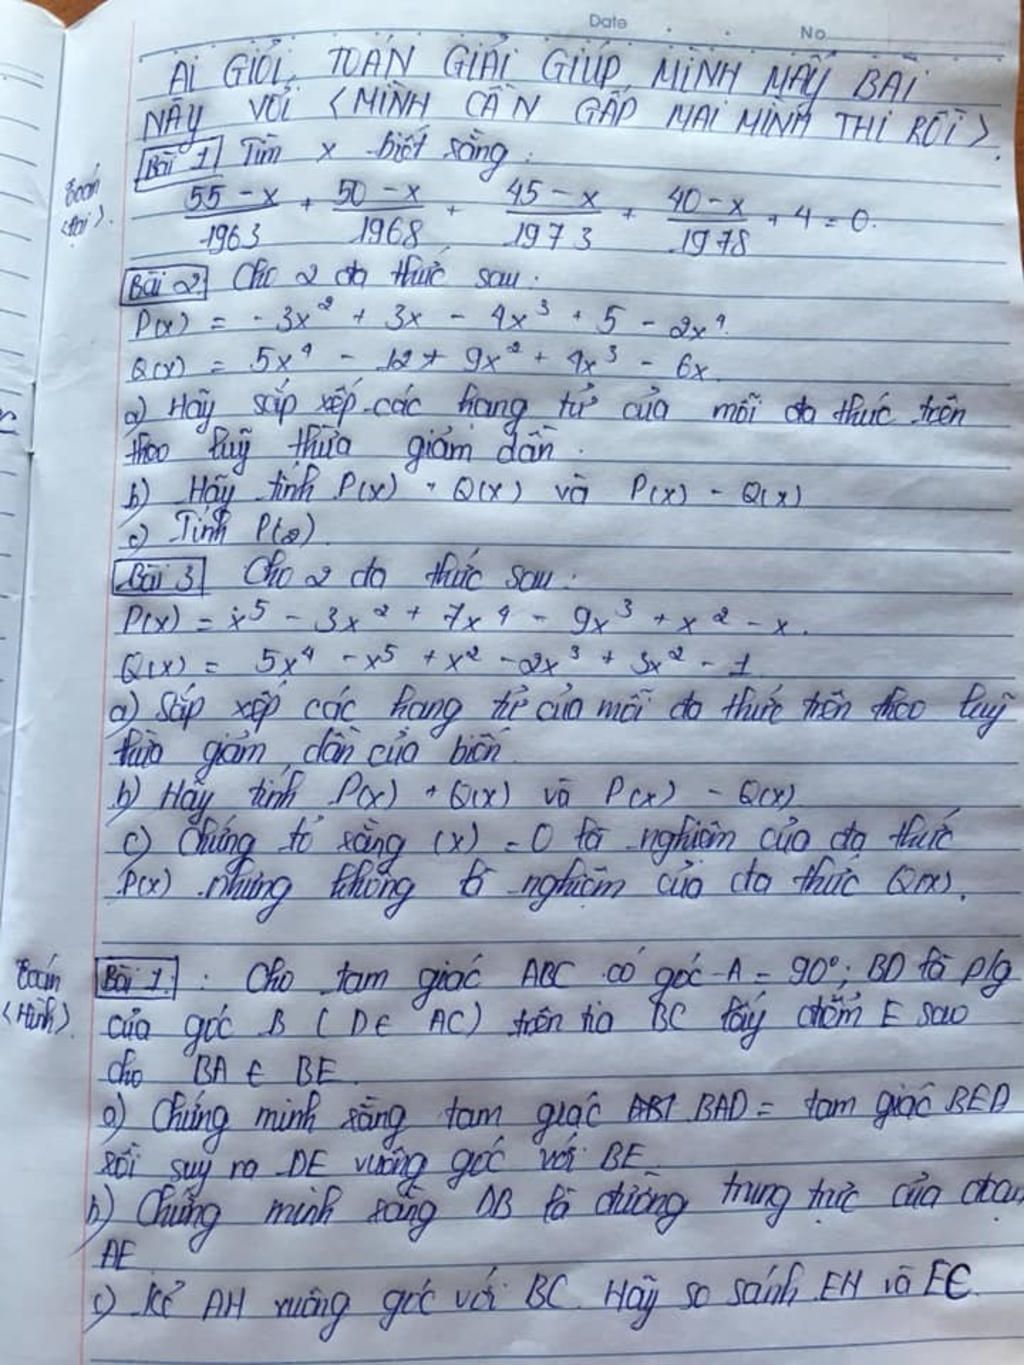 Date No
AI GIỎI TOÁN GIẢI GIÚP MÌNH MẤY BÀI
NÀY VỚI <MÌNH CẦN GẤP MAI MÌNH THI RỒI>.
Bài 1 Tìm x biết rằng :
Toán <Đại>.
55 - x / 1963 + 50 - x / 1968 + 45 - x / 1973 + 40 - x / 1978 + 4 = 0.
Bài 2 Cho 2 đa thức sau :
P(x) = - 3x² + 3x - 4x³ + 5 - 2x⁴.
Q(x) = 5x⁴ - 12 + 9x² + 4x³ - 6x
a) Hãy sắp xếp các hạng tử của mỗi đa thức trên
theo luỹ thừa giảm dần .
b) Hãy tính P(x) + Q(x) và P(x) - Q(x)
c) Tính P(2)
Bài 3 Cho 2 đa thức sau :
P(x) = x⁵ - 3x² + 7x⁴ - 9x³ + x² - x.
Q(x) = 5x⁴ - x⁵ + x² - 2x³ + 3x² - 1
a) Sắp xếp các hạng tử của mỗi đa thức trên theo luỹ
thừa giảm dần của biến
b) Hãy tính P(x) + Q(x) và P(x) - Q(x)
c) Chứng tỏ rằng (x) = 0 là nghiệm của đa thức
P(x) nhưng không là nghiệm của đa thức Q(x).
Toán <Hình>.
Bài 1. : Cho tam giác ABC có góc A = 90°; BD là p/g
của góc B ( D ∈ AC) trên tia BC lấy điểm E sao
cho BA ∈ BE.
a) Chứng minh rằng tam giác BAD = tam giác BED
rồi suy ra DE vuông góc với BE
b) Chứng minh rằng DB là đường trung trực của đoạn
AE
c) Kẻ AH vuông góc với BC. Hãy so sánh EH và EC.